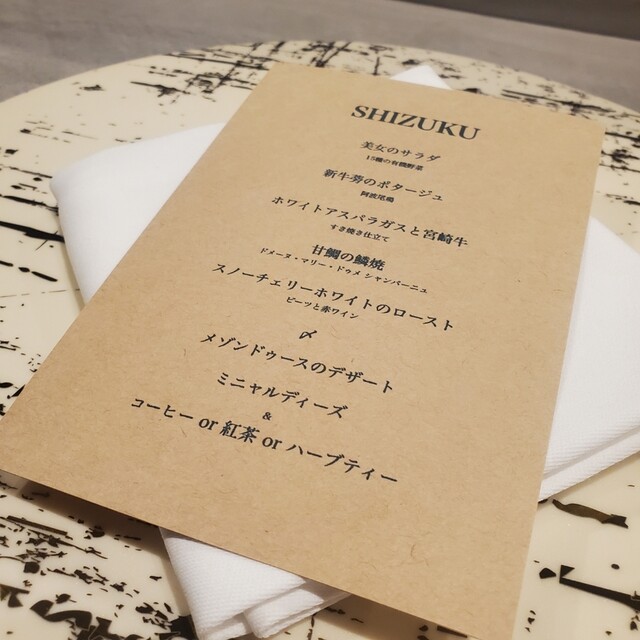 SHIZUKU
美女のサラダ
15種の有機野菜
新牛蒡のポタージュ
阿波尾鶏
ホワイトアスパラガスと宮崎牛
すき焼き仕立て
甘鯛の鱗焼
ドメーヌ・マリー・ドゥメ シャンパーニュ
スノーチェリーホワイトのロースト
ビーツと赤ワイン
〆
メゾンドゥースのデザート
ミニャルディーズ
&
コーヒー or 紅茶 or ハーブティー